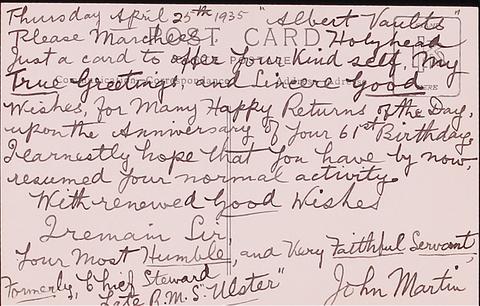 Thursday April 25th 1935 "Albert Vaults"
Please Holyhead
POST CARD
Just a card to offer Your Kind self, My
True Greetings and Sincere Good
Wishes, for Many Happy Returns of the Day,
upon the Anniversary of Your 61st Birthday,
I earnestly hope that You have by now,
resumed Your normal activity.
With renewed Good Wishes
I remain Sir,
Your Most Humble, and Very Faithful Servant,
Formerly, Chief Steward John Martin
Late R.M.S. "Ulster"